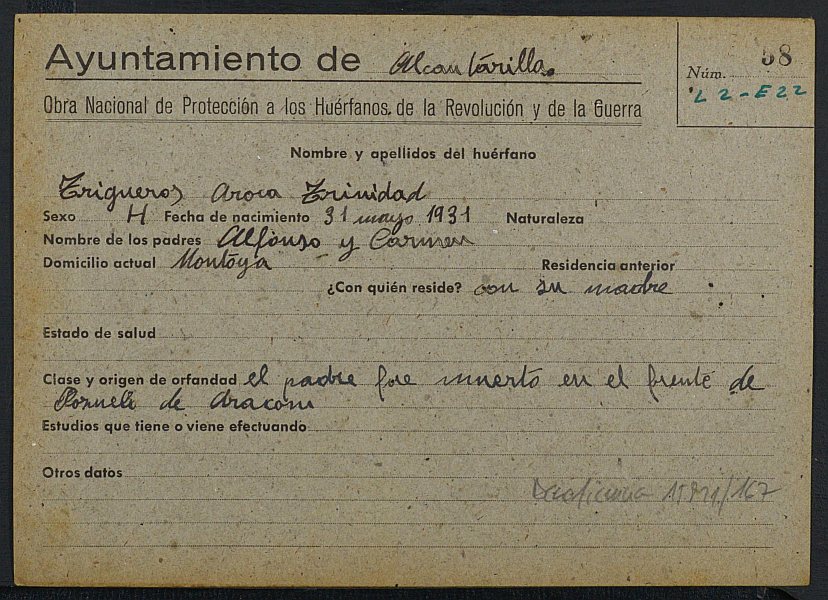 Ayuntamiento de Alcantarilla.
Núm. 58
L 2-E22
Obra Nacional de Protección a los Huérfanos de la Revolución y de la Guerra
Nombre y apellidos del huérfano
Trigueros Aroca Trinidad
Sexo H Fecha de nacimiento 31 mayo 1931 Naturaleza
Nombre de los padres Alfonso y Carmen
Domicilio actual Montoya Residencia anterior
¿Con quién reside? con su madre
Estado de salud
Clase y origen de orfandad el padre fue muerto en el frente de
de
Estudios que tiene o viene efectuando
Otros datos